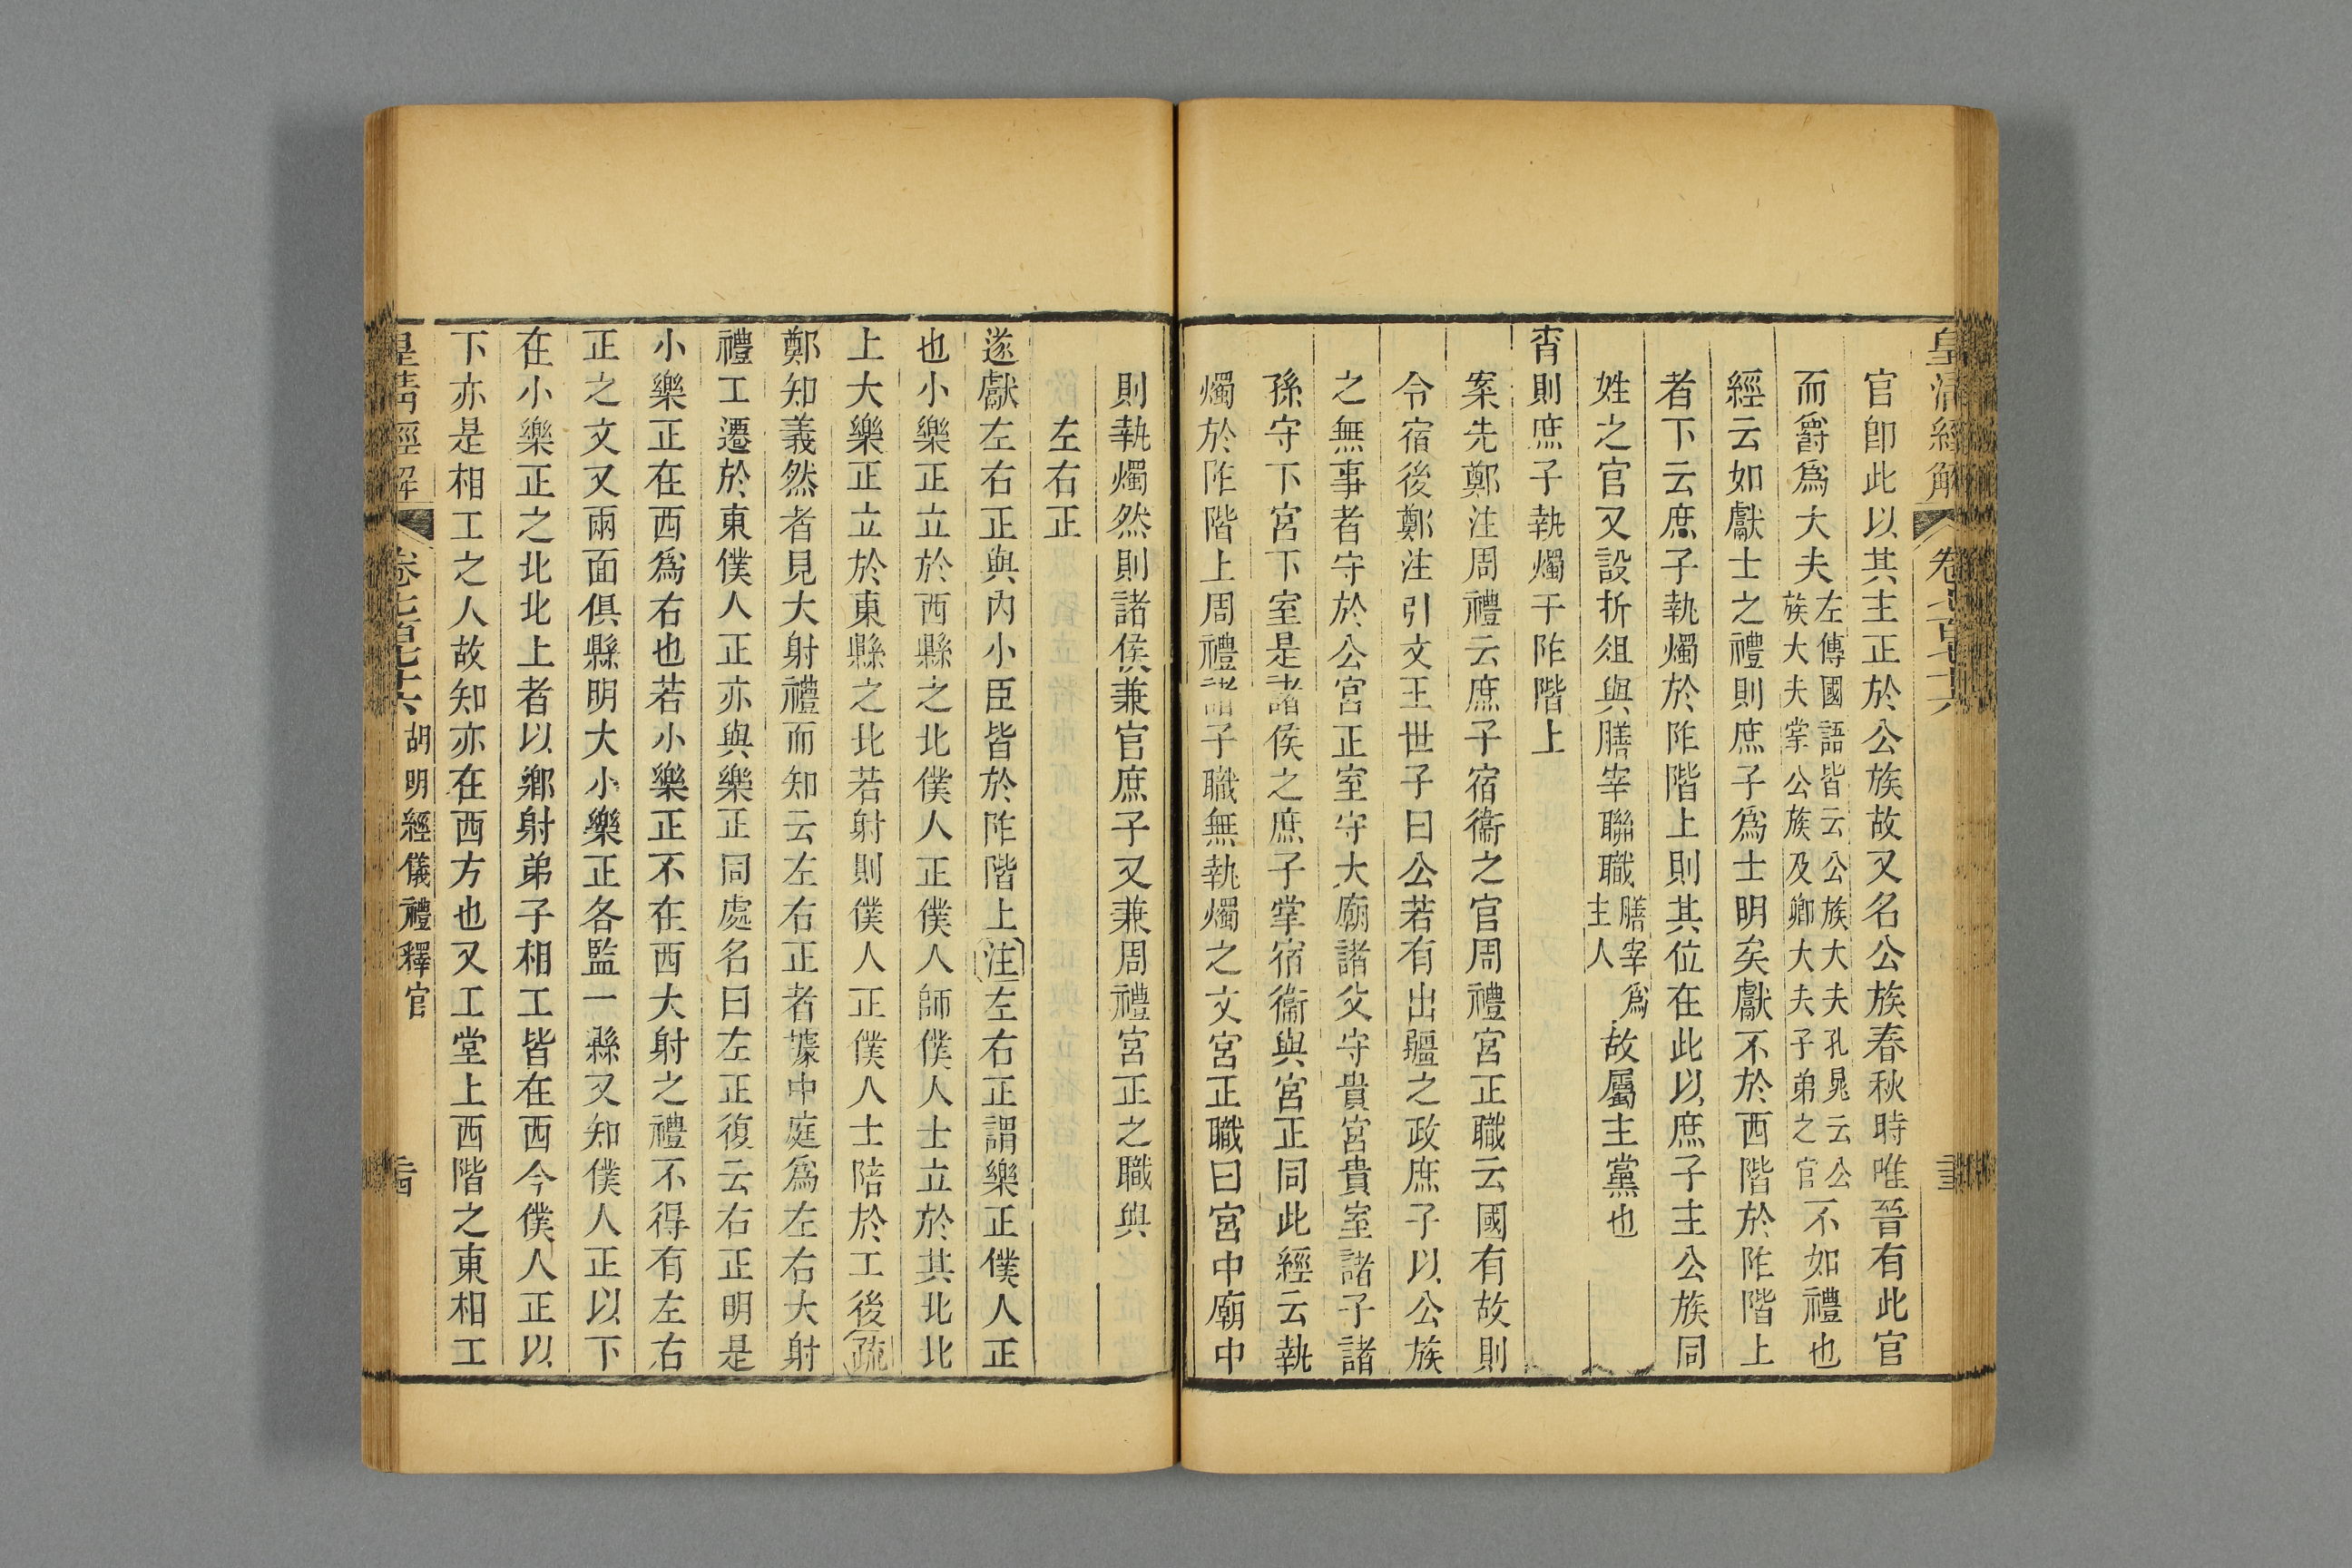 皇清經解
卷七百七十六
官卽此以其主正於公族故又名公族春秋時唯晉有此官
而爵爲大夫左傳國語皆云公族大夫孔晁云公族大夫掌公族及卿大夫子弟之官不如禮也
經云如獻士之禮則庶子爲士明矣獻不於西階於阼階上
者下云庶子執燭於阼階上則其位在此以庶子主公族同
姓之官又設折俎與膳宰聯職膳宰爲主人故屬主黨也
宵則庶子執燭于阼階上
案先鄭注周禮云庶子宿衞之官周禮宮正職云國有故則
令宿後鄭注引文王世子曰公若有出疆之政庶子以公族
之無事者守於公宮正室守大廟諸父守貴宮貴室諸子諸
孫守下宮下室是諸侯之庶子掌宿衞與宮正同此經云執
燭於阼階上周禮諸子職無執燭之文宮正職曰宮中廟中
則執燭然則諸侯兼官庶子又兼周禮宮正之職與
左右正
遂獻左右正與內小臣皆於阼階上注左右正謂樂正僕人正
也小樂正立於西縣之北僕人正僕人師僕人士立於其北北
上大樂正立於東縣之北若射則僕人正僕人士陪於工後疏
鄭知義然者見大射禮而知云左右正者據中庭爲左右大射
禮工遷於東僕人正亦與樂正同處名曰左正復云右正明是
小樂正在西爲右也若小樂正不在西大射之禮不得有左右
正之文又兩面俱縣明大小樂正各監一縣又知僕人正以下
在小樂正之北北上者以鄉射弟子相工皆在西今僕人正以
下亦是相工之人故知亦在西方也又工堂上西階之東相工
皇清經解
卷七百七十六
胡明經儀禮釋官